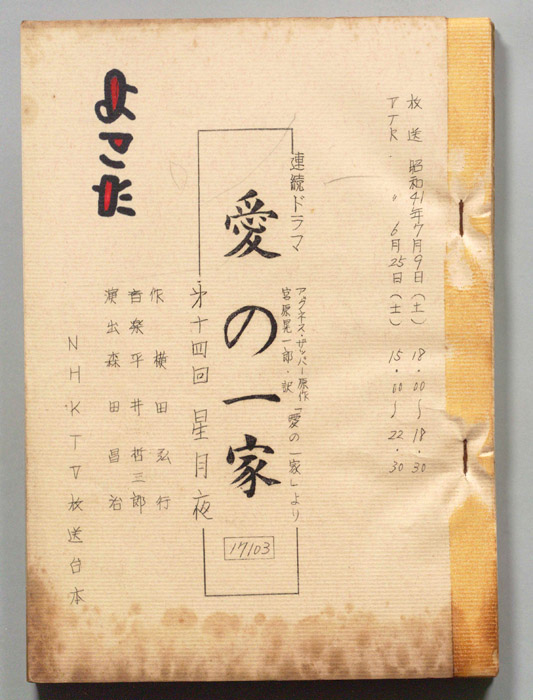 放送 昭和41年7月9日(土) 18.00〜18.30
VTR. 〃 6月25日(土) 15.00〜22.30
連続ドラマ
アグネス・ザッパー原作「愛の一家」より
宮原晃一郎・訳
愛の一家
17103
第十四回 星月夜
作 横田弘行
音楽 平井哲三郎
演出 森田昌治
NHKTV放送台本
よこた